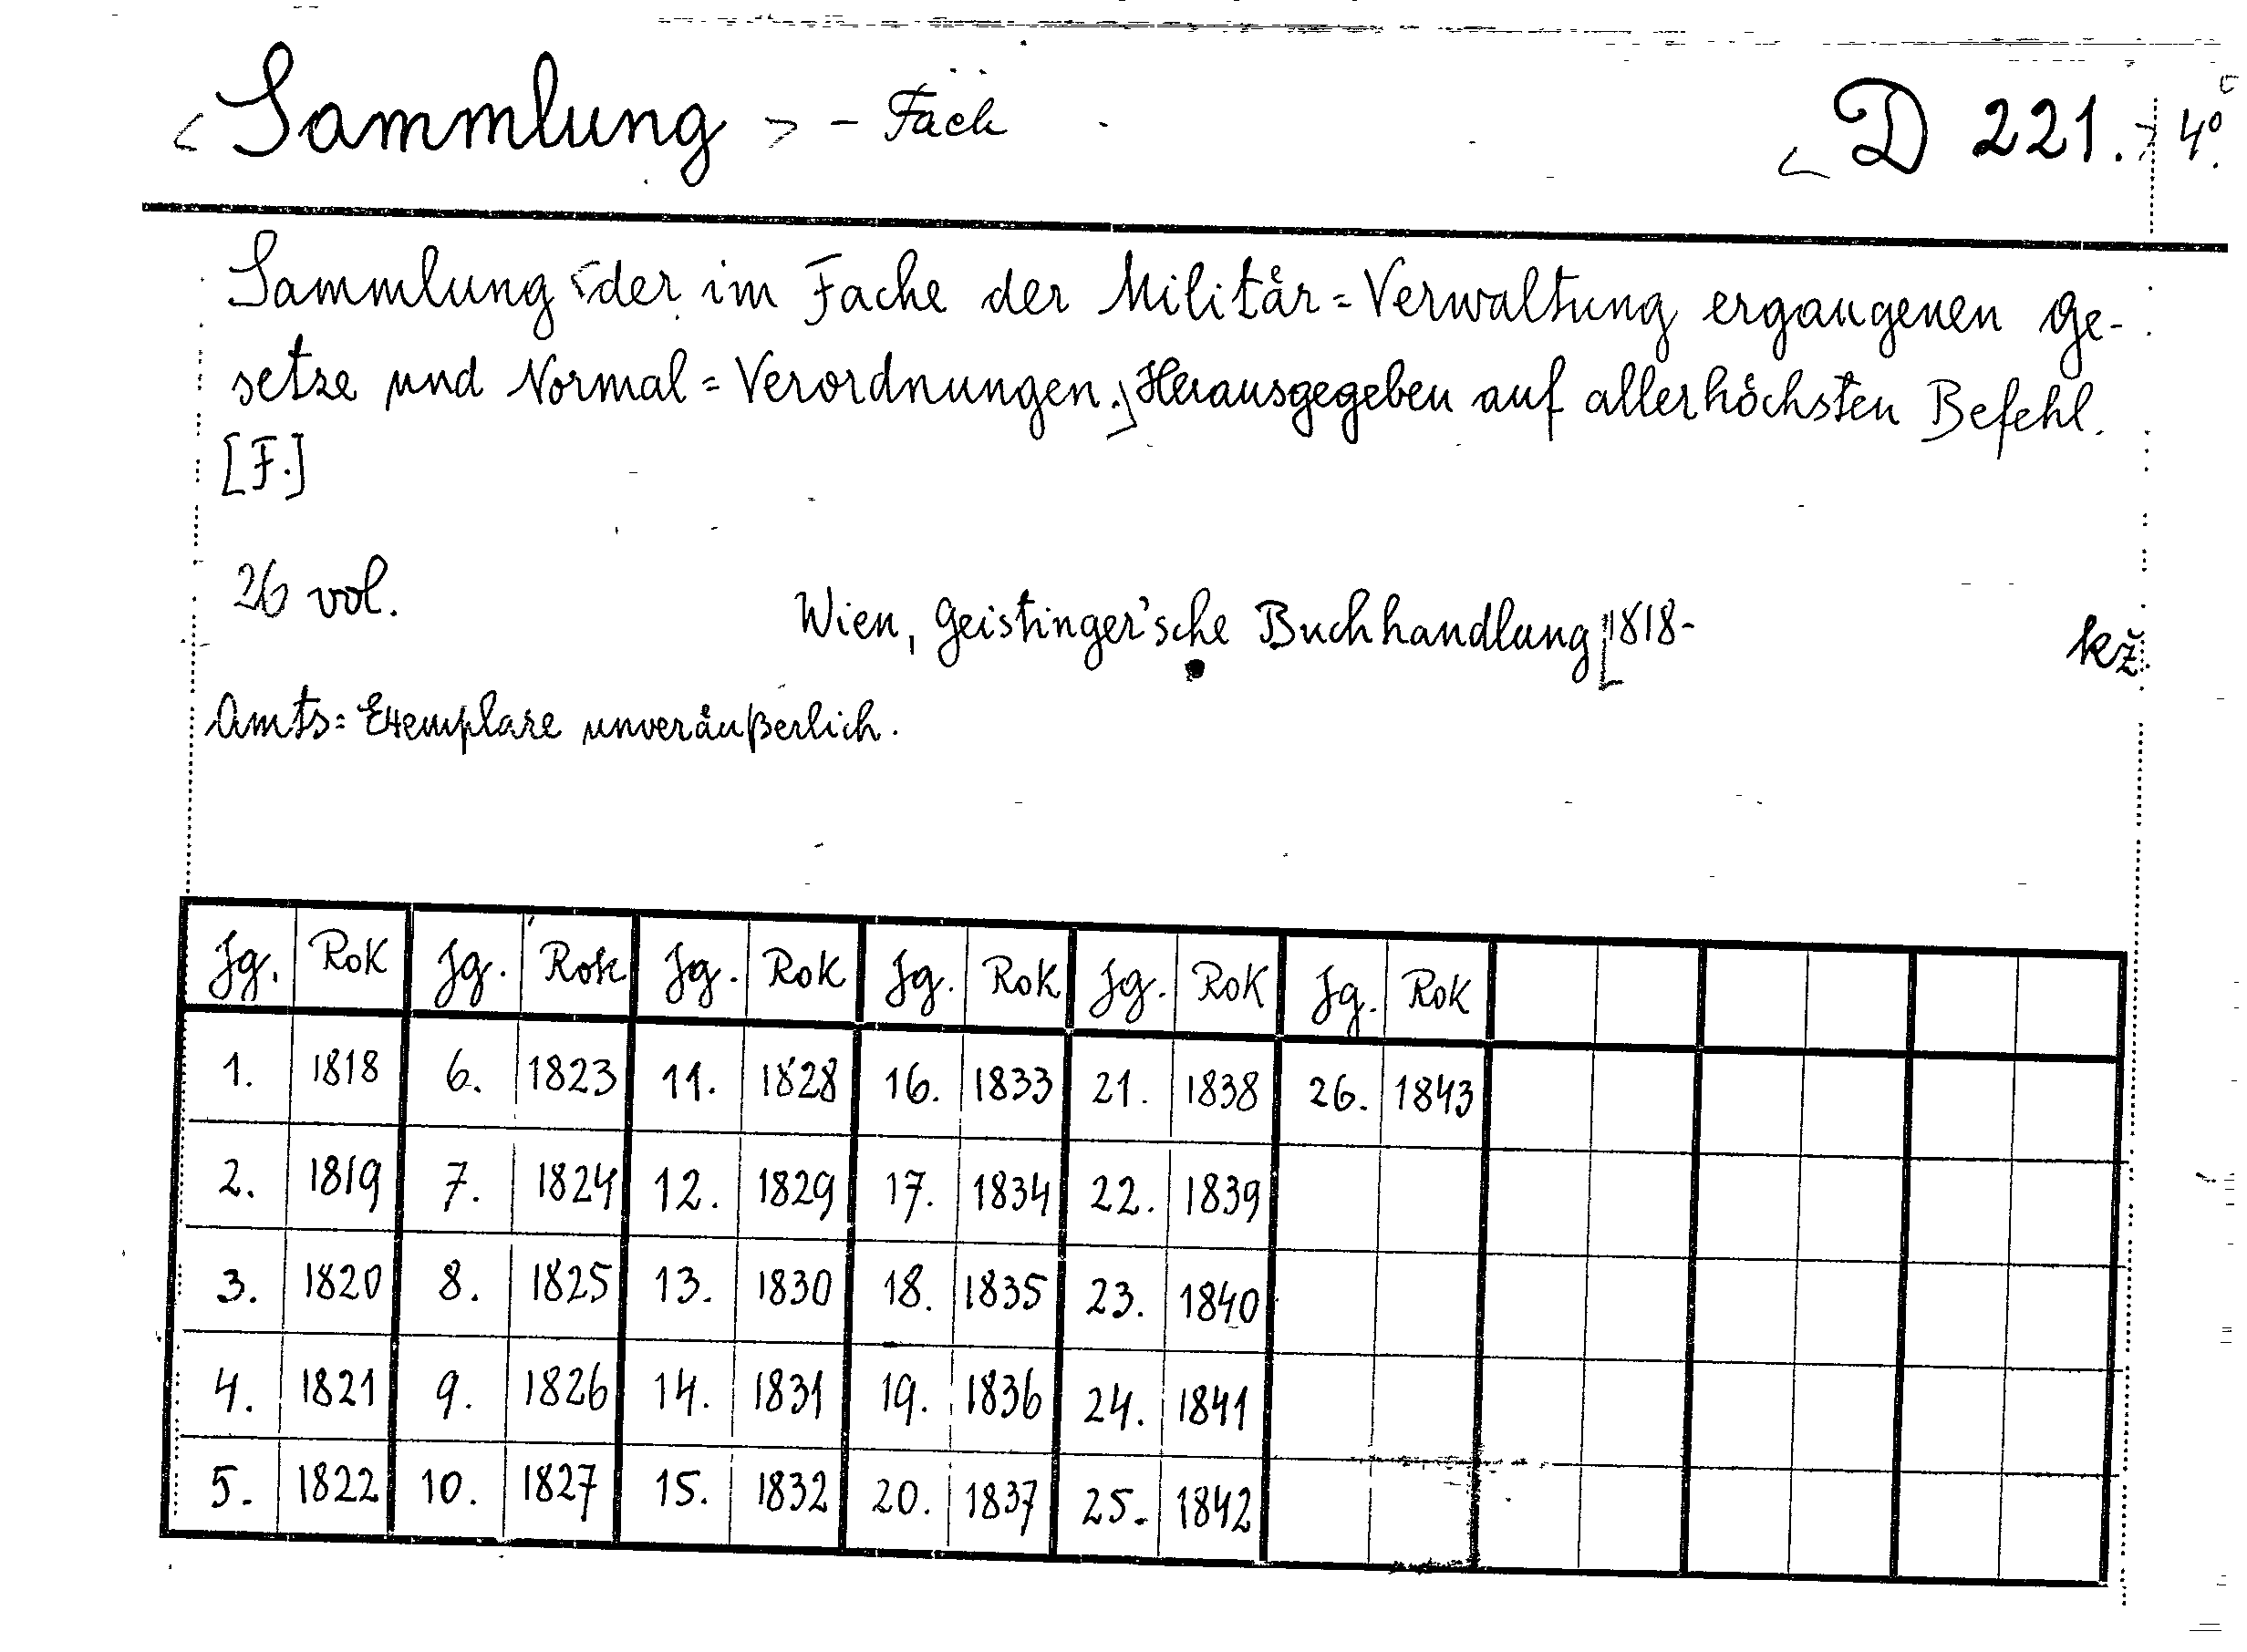 <Sammlung> - Fach <D 221.> 4°.
Sammlung <der im Fache der Militär=Verwaltung ergangenen Ge-
setze und Normal=Verordnungen.> Herausgegeben auf allerhöchsten Befehl.
[F.]
26 vol. Wien, Geistinger'sche Buchhandlung [1818- kž.
Amts=Exemplare unveräußerlich.
Jg. Rok Jg. Rok Jg. Rok Jg. Rok Jg. Rok Jg. Rok
1. 1818 6. 1823 11. 1828 16. 1833 21. 1838 26. 1843
2. 1819 7. 1824 12. 1829 17. 1834 22. 1839
3. 1820 8. 1825 13. 1830 18. 1835 23. 1840
4. 1821 9. 1826 14. 1831 19. 1836 24. 1841
5. 1822 10. 1827 15. 1832 20. 1837 25. 1842